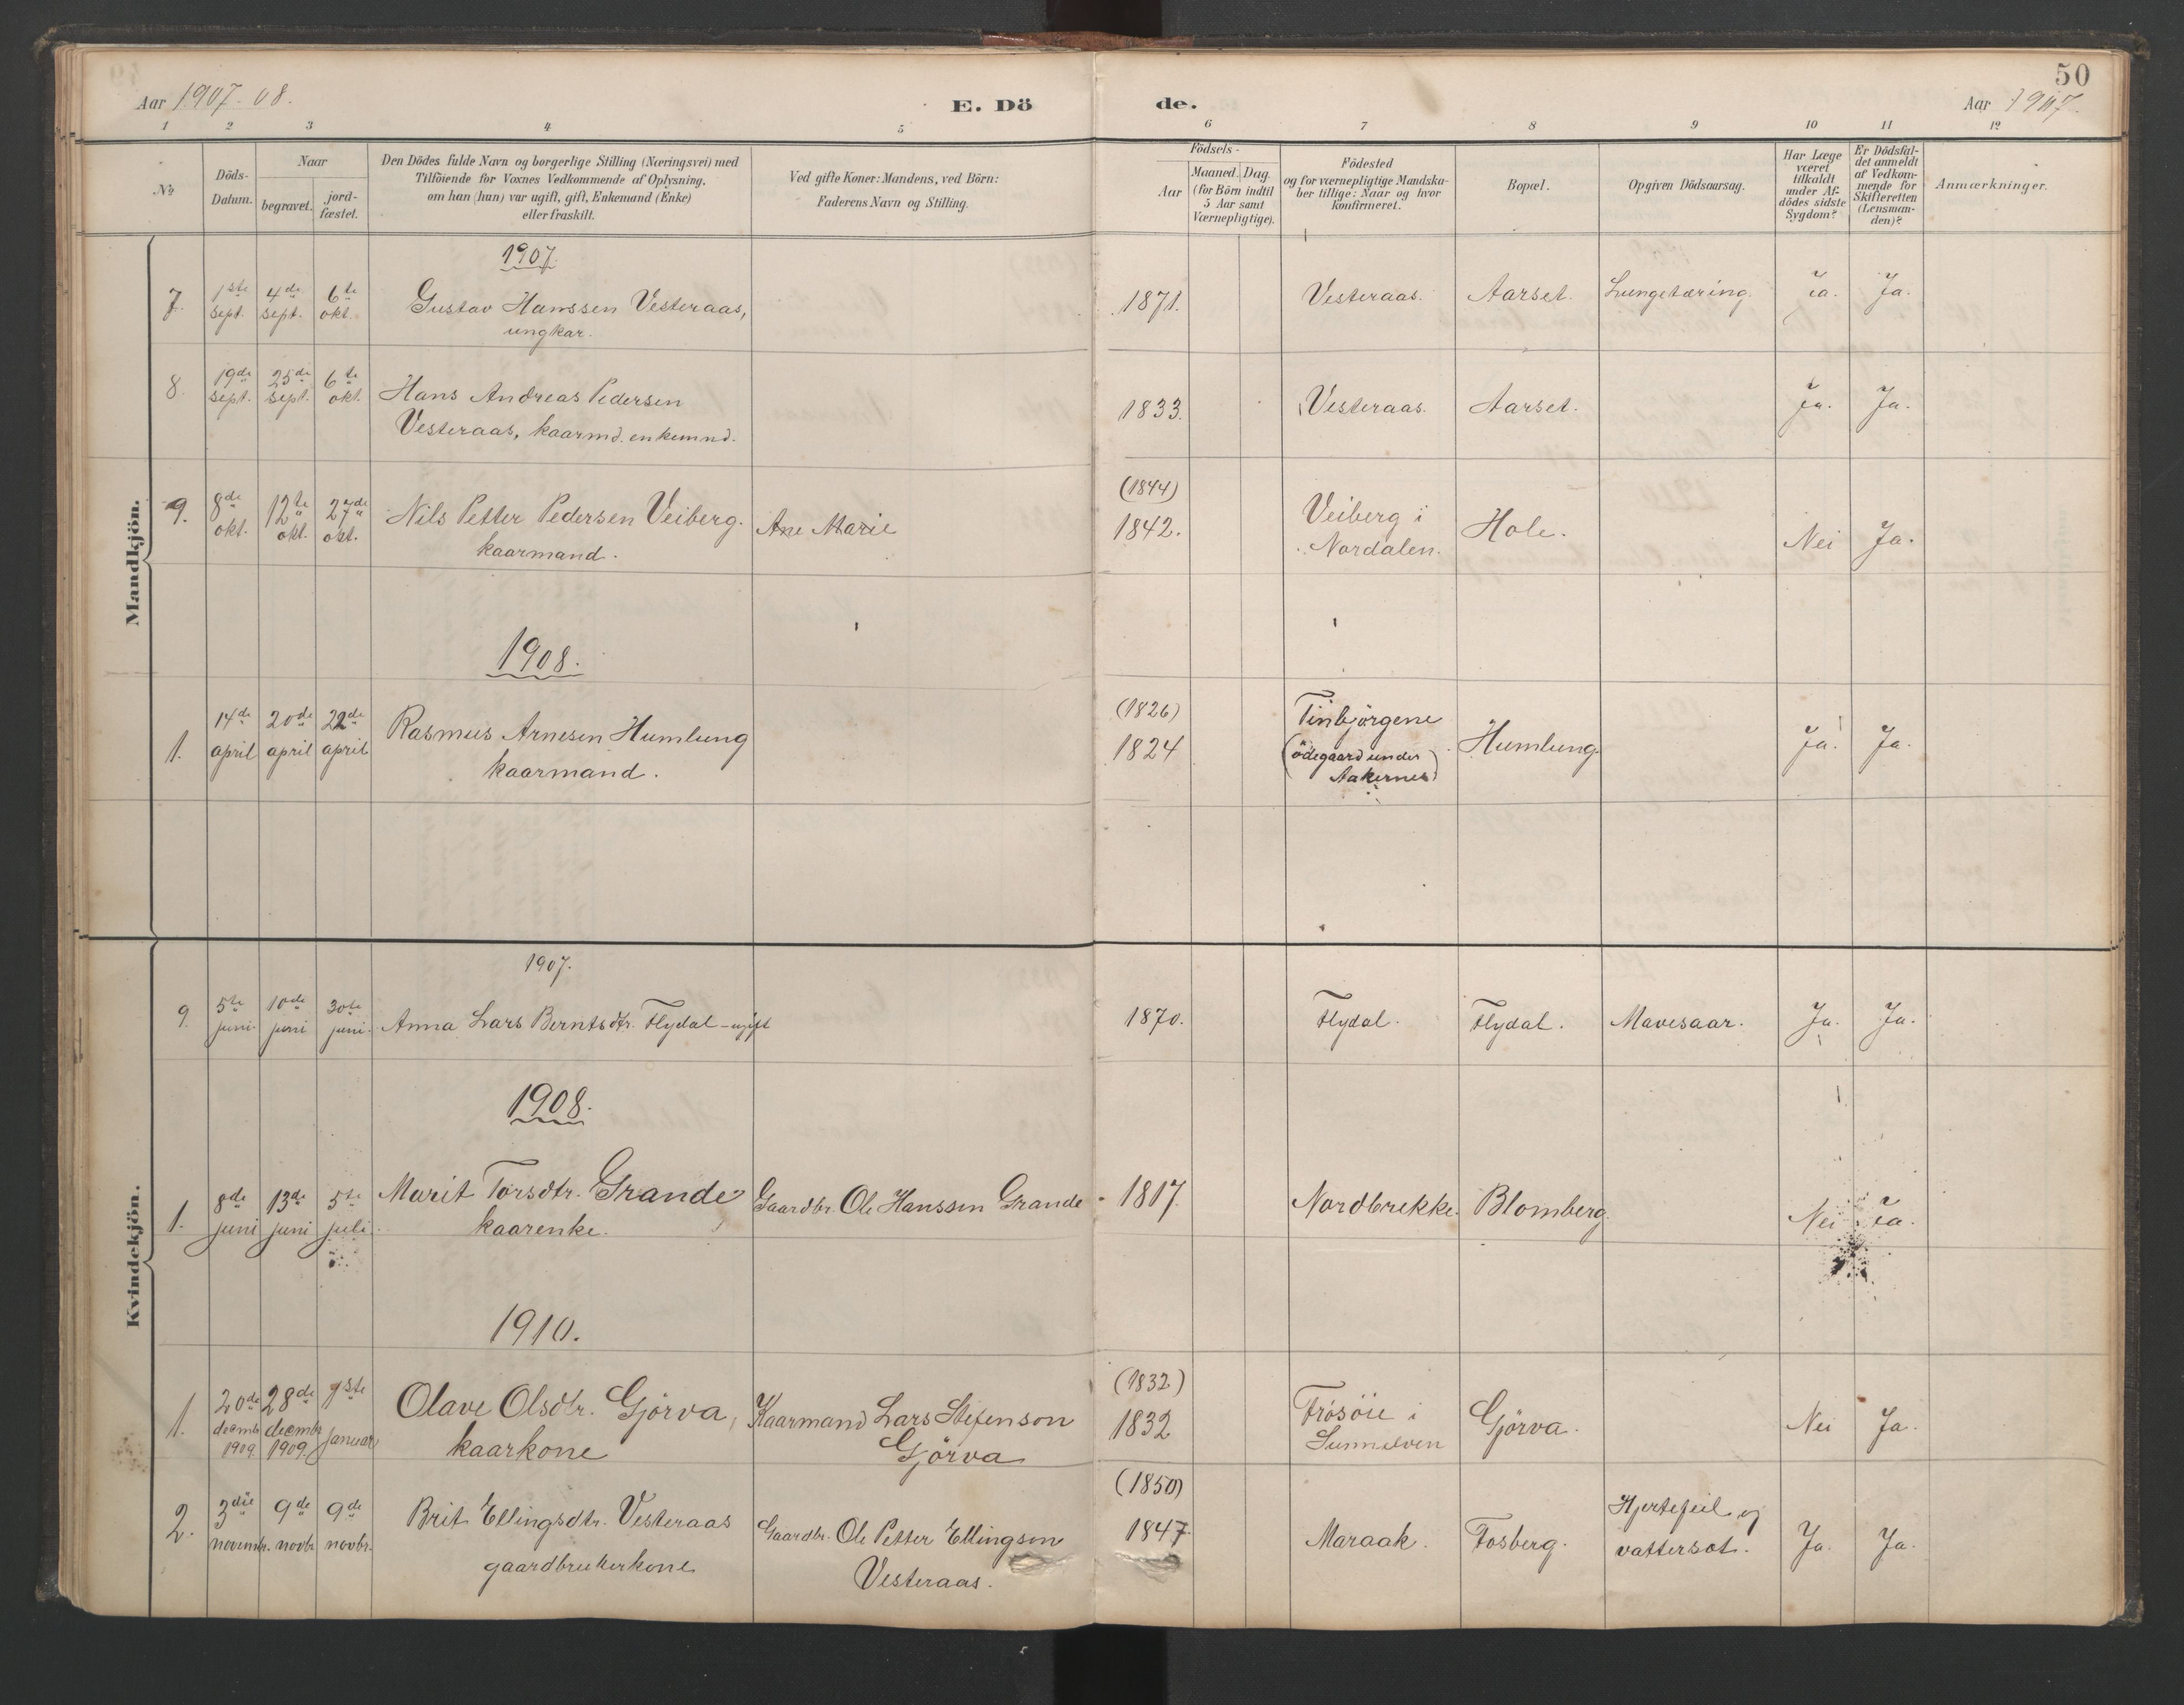 50
Aar 1907. 08.
E. Dö
de.
Aar 1907.
1 2 3 4 5 6 7 8 9 10 11 12
No
Döds-
Datum.
Naar
begravet.
jord-
fæstet.
Den Dödes fulde Navn og borgerlige Stilling (Næringsvei) med
Tilföiende for Voxnes Vedkommende af Oplysning,
om han (hun) var ugift, gift, Enkemand (Enke)
eller fraskilt.
Ved gifte Koner: Mandens, ved Börn:
Faderens Navn og Stilling.
Födsels-
Aar
Maaned. Dag.
(for Börn indtil
5 Aar samt
Værnepligtige).
Födested
og for værnepligtige Mandska-
ber tillige: Naar og hvor
konfirmeret.
Bopæl.
Opgiven Dödsaarsag.
Har Læge
været
tilkaldt
under Af-
dödes sidste
Sygdom?
Er Dödsfal-
det anmeldt
af Vedkom-
mende for
Skifteretten
(Lensman-
den)?
Anmærkninger.
Mandkjön.
1907.
7. 1ste sept. 4de sept. 6te okt. Gustav Hanssen Vesteraas, 1871. Vesteraas. Aarset. Lungetæring. Ja. Ja.
ungkar.
8. 19de sept. 25de sept. 6te okt. Hans Andreas Pedersen
Vesteraas, kaarmd. enkemnd. 1833. Vesteraas. Aarset. Ja. Ja.
9. 8de okt. 12te okt. 27de okt. Nils Petter Pedersen Veiberg. Ane Marie (1844)
kaarmand. 1842. Veiberg i
Nordalen. Hole. Nei Ja.
1908.
1. 14de april 20de april 22de april Rasmus Arnesen Humlung (1826)
kaarmand. 1824 Tinbjörgene
(ödegaard under
Aakernes) Humlung. Ja. Ja.
Kvindekjön.
1907.
9. 5te juni. 10de juni 30te juni. Anna Lars Berntsdtr. Flydal - ugift 1870. Flydal. Flydal. Mavesaar. Ja. Ja.
1908.
1. 8de juni 13de juni 5te juli Marit Torsdtr. Grande Gaardbr. Ole Hanssen Grande 1817. Nordbrekke. Blomberg. Nei Ja.
kaarenke.
1910.
1. 20de decemb. 1909. 28de decembr 1909. 1ste januar Olave Olsdtr. Gjörva, Kaarmand Lars Stefenson (1832)
kaarkone Gjörva 1832 Frösöie i
Sunnelven Gjörva. Nei Ja.
2. 3die novembr. 9de novbr. 9de novbr. Brit Ellingsdtr. Vesteraas Gaardbr. Ole Petter Ellingson (1850)
gaardbrukerkone Vesteraas. 1847. Maraak. Fosberg. Hjertefeil og
vattersot. Ja. Ja.